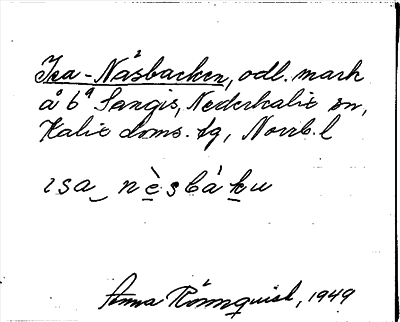 Isa-Näsbacken, odl. mark
å bå Sangis, Nederkalix sn,
Kalix doms. tg, Norrb. l
ısa‿nèsbáku
Anna Rönnquist, 1949